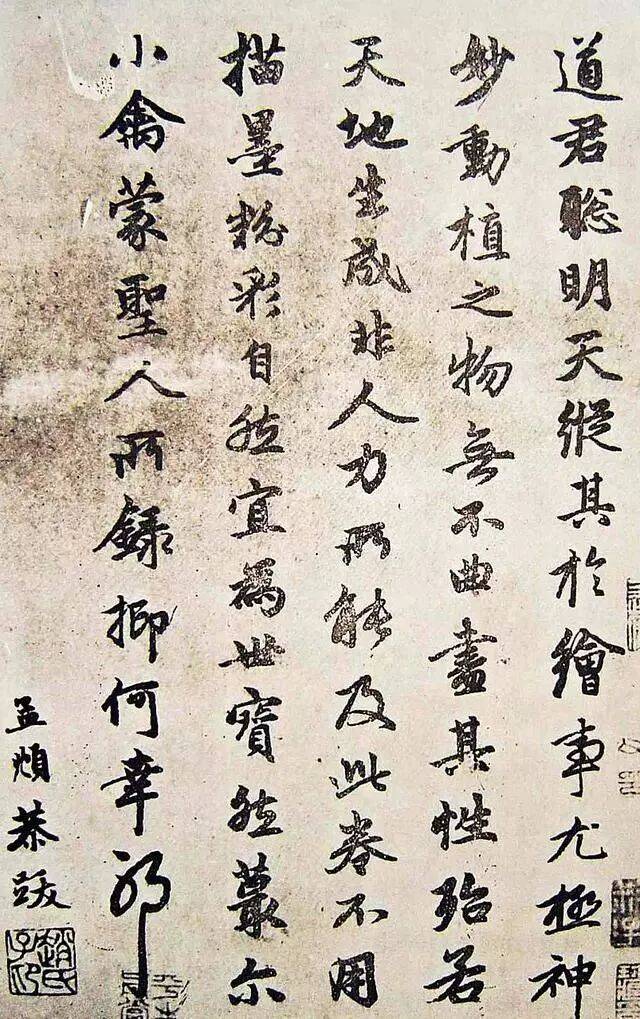 道君聪明天縱其於繪事尤極神
妙動植之物無不曲盡其性殆若
天地生成非人力所能及此卷不用
描墨粉彩自然宜為世寶然蕞尔
小禽蒙聖人所録抑何幸耶
孟頫恭跋
趙氏子昂